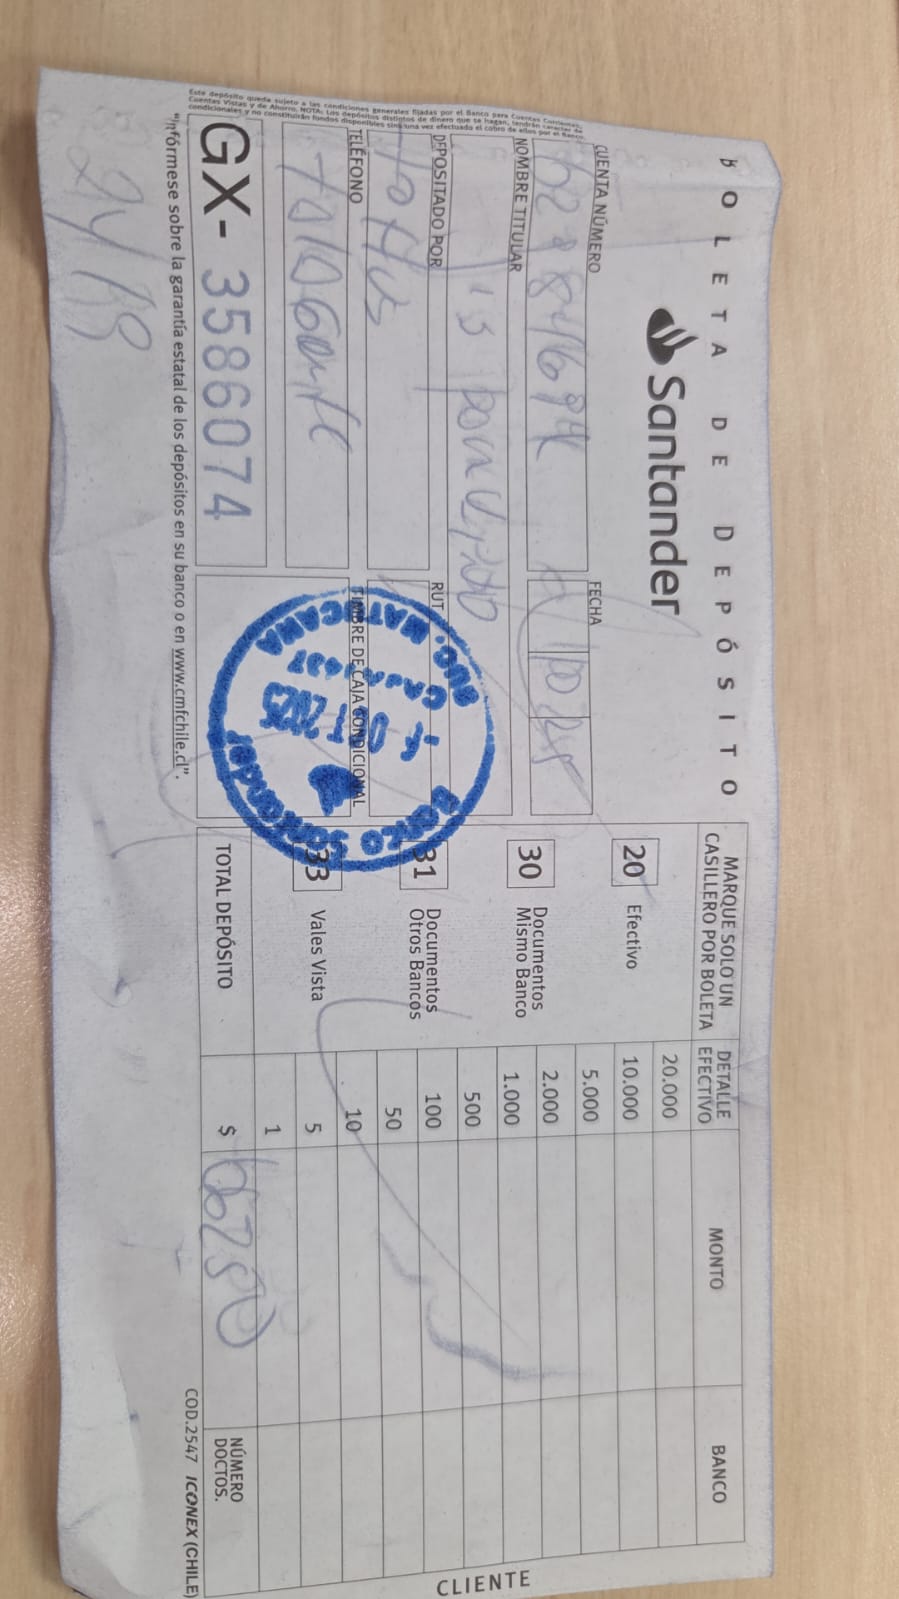 BOLETA DE DEPÓSITO
Santander
CUENTA NÚMERO
FECHA
10 25
NOMBRE TITULAR
DEPOSITADO POR
RUT
Tottus
TELÉFONO
TIMBRE DE CAJA CONDICIONAL
Talagante
GX- 3586074
Este depósito queda sujeto a las condiciones generales fijadas por el Banco para Cuentas Corrientes,
Cuentas Vistas y de Ahorro. NOTA: Los depósitos distintos de dinero que se hagan, tendrán carácter de
condicionales y no constituirán fondos disponibles sino una vez efectuado el cobro de ellos por el Banco.
"Infórmese sobre la garantía estatal de los depósitos en su banco o en www.cmfchile.cl".
SUC. MATUCANA
CAJA
OCT 2025
Banco Santander
MARQUE SOLO UN
CASILLERO POR BOLETA
20 Efectivo
30 Documentos
Mismo Banco
31 Documentos
Otros Bancos
33 Vales Vista
DETALLE
EFECTIVO
MONTO
BANCO
20.000
10.000
5.000
2.000
1.000
500
100
50
10
5
1
TOTAL DEPÓSITO
$
NÚMERO
DOCTOS.
COD.2547 ICONEX (CHILE)
CLIENTE